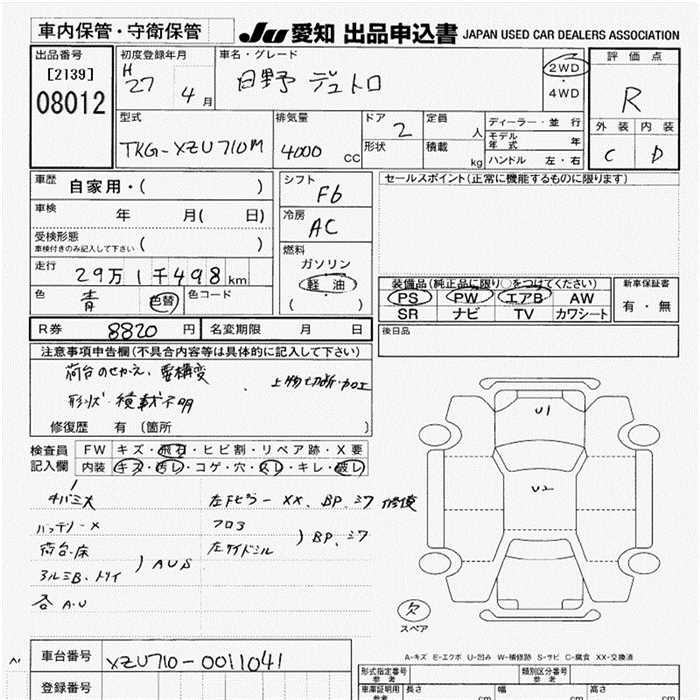 車内保管・守衛保管
JU 愛知 出品申込書 JAPAN USED CAR DEALERS ASSOCIATION
出品番号
[2139]
08012
初度登録年月
H
27 4月
車名・グレード
日野 デュトロ
2WD
4WD
評価点
R
外装 内装
C D
型式
TKG-XZU710M
排気量
4000 CC
ドア
2
形状
定員 人
積載 kg
ディーラー・並行
モデル年式 年
ハンドル 左・右
車歴 自家用・( )
車検 年 月( 日)
受検形態
車検付きのみ記入して下さい ( )
走行 29万1千498km
色 青 色替 色コード
シフト
F6
冷房
AC
燃料
ガソリン
軽油
( )
セールスポイント(正常に機能するものに限ります)
装備品(純正品に限り○をつけてください)
PS PW エアB AW
SR ナビ TV カワシート
新車保証書
有・無
後日品
R券 8820円 名変期限 月 日
注意事項申告欄(不具合内容等は具体的に記入して下さい)
荷台のせかえ、要構変
・上物切断・加工
形状・積載不明
修復歴 有 (箇所 )
検査員記入欄
FW キズ・飛石・ヒビ割・リペア跡・X要
内装 キズ・汚レ・コゲ・穴・スレ・キレ・破レ
左Fピラー XX、BP、シワ 修復
バッテリーX
フロア
荷台・床
左サイドシル
) BP、シワ
アルミB、トリイ
) AUS
各 A・U
U1
U2
欠
スペア
A-キズ E-エクボ U-凹み W-補修跡 S-サビ C-腐食 XX-交換済
車台番号 XZU710-0011041
登録番号
型式指定番号 参考
類別区分番号 参考
車庫証明用 参考 長さ cm 幅 cm 高さ cm